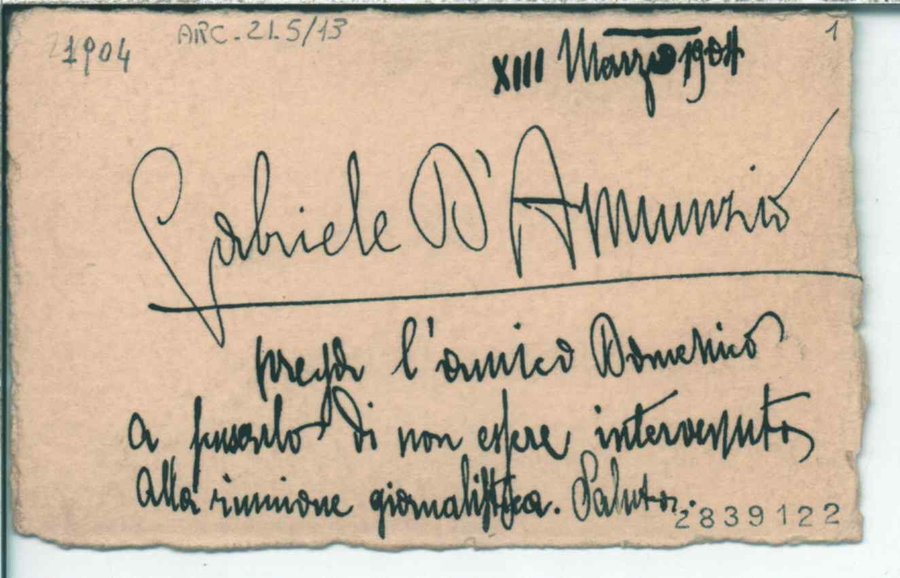 1904
ARC.21.5/13
1
XIII Marzo 1904
Gabriele D'Annunzio
prega l'amico Domenico
a scusarlo di non essere intervenuto
alla riunione giornalistica. Saluta.
2839122